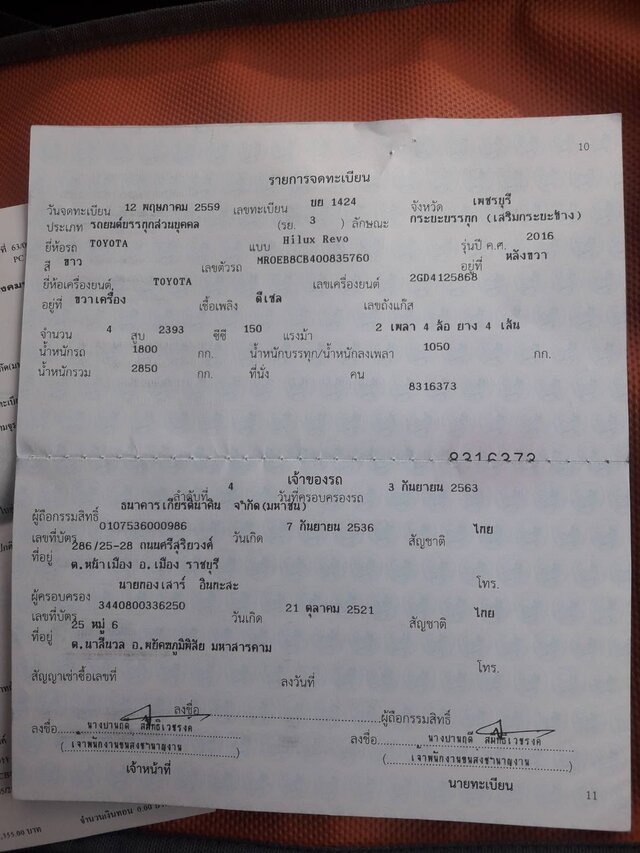 10
รายการจดทะเบียน
วันจดทะเบียน 12 พฤษภาคม 2559 เลขทะเบียน ขย 1424 จังหวัด เพชรบุรี
ประเภท รถยนต์บรรทุกส่วนบุคคล (รย. 3 ) ลักษณะ กระบะบรรทุก (เสริมกระบะข้าง)
ยี่ห้อรถ TOYOTA แบบ Hilux Revo รุ่นปี ค.ศ. 2016
สี ขาว เลขตัวรถ MROEB8CB400835760 อยู่ที่ หลังขวา
ยี่ห้อเครื่องยนต์ TOYOTA เลขเครื่องยนต์ 2GD4125868
อยู่ที่ ขวาเครื่อง เชื้อเพลิง ดีเซล เลขถังแก๊ส
จำนวน 4 สูบ 2393 ซีซี 150 แรงม้า 2 เพลา 4 ล้อ ยาง 4 เส้น
น้ำหนักรถ 1800 กก. น้ำหนักบรรทุก/น้ำหนักลงเพลา 1050 กก.
น้ำหนักรวม 2850 กก. ที่นั่ง คน
8316373
8316373
เจ้าของรถ
ลำดับที่ 4 วันที่ครอบครองรถ 3 กันยายน 2563
ผู้ถือกรรมสิทธิ์ ธนาคารเกียรตินาคิน จำกัด(มหาชน)
เลขที่บัตร 0107536000986 วันเกิด 7 กันยายน 2536 สัญชาติ ไทย
ที่อยู่ 286/25-28 ถนนศรีสุริยวงศ์
ต.หน้าเมือง อ.เมือง ราชบุรี
ผู้ครอบครอง นายกองเสาร์ อินทะสะ โทร.
เลขที่บัตร 3440800336250 วันเกิด 21 ตุลาคม 2521 สัญชาติ ไทย
ที่อยู่ 25 หมู่ 6
ต.นาสีนวล อ.พยัคฆภูมิพิสัย มหาสารคาม
โทร.
สัญญาเช่าซื้อเลขที่ ลงวันที่
ลงชื่อ ผู้ถือกรรมสิทธิ์
ลงชื่อ ลงชื่อ
(เจ้าพนักงานขนส่งชำนาญงาน) (เจ้าพนักงานขนส่งชำนาญงาน)
เจ้าหน้าที่ นายทะเบียน
11
จำนวนเงินทอน 0.00 บาท
,355.00 บาท